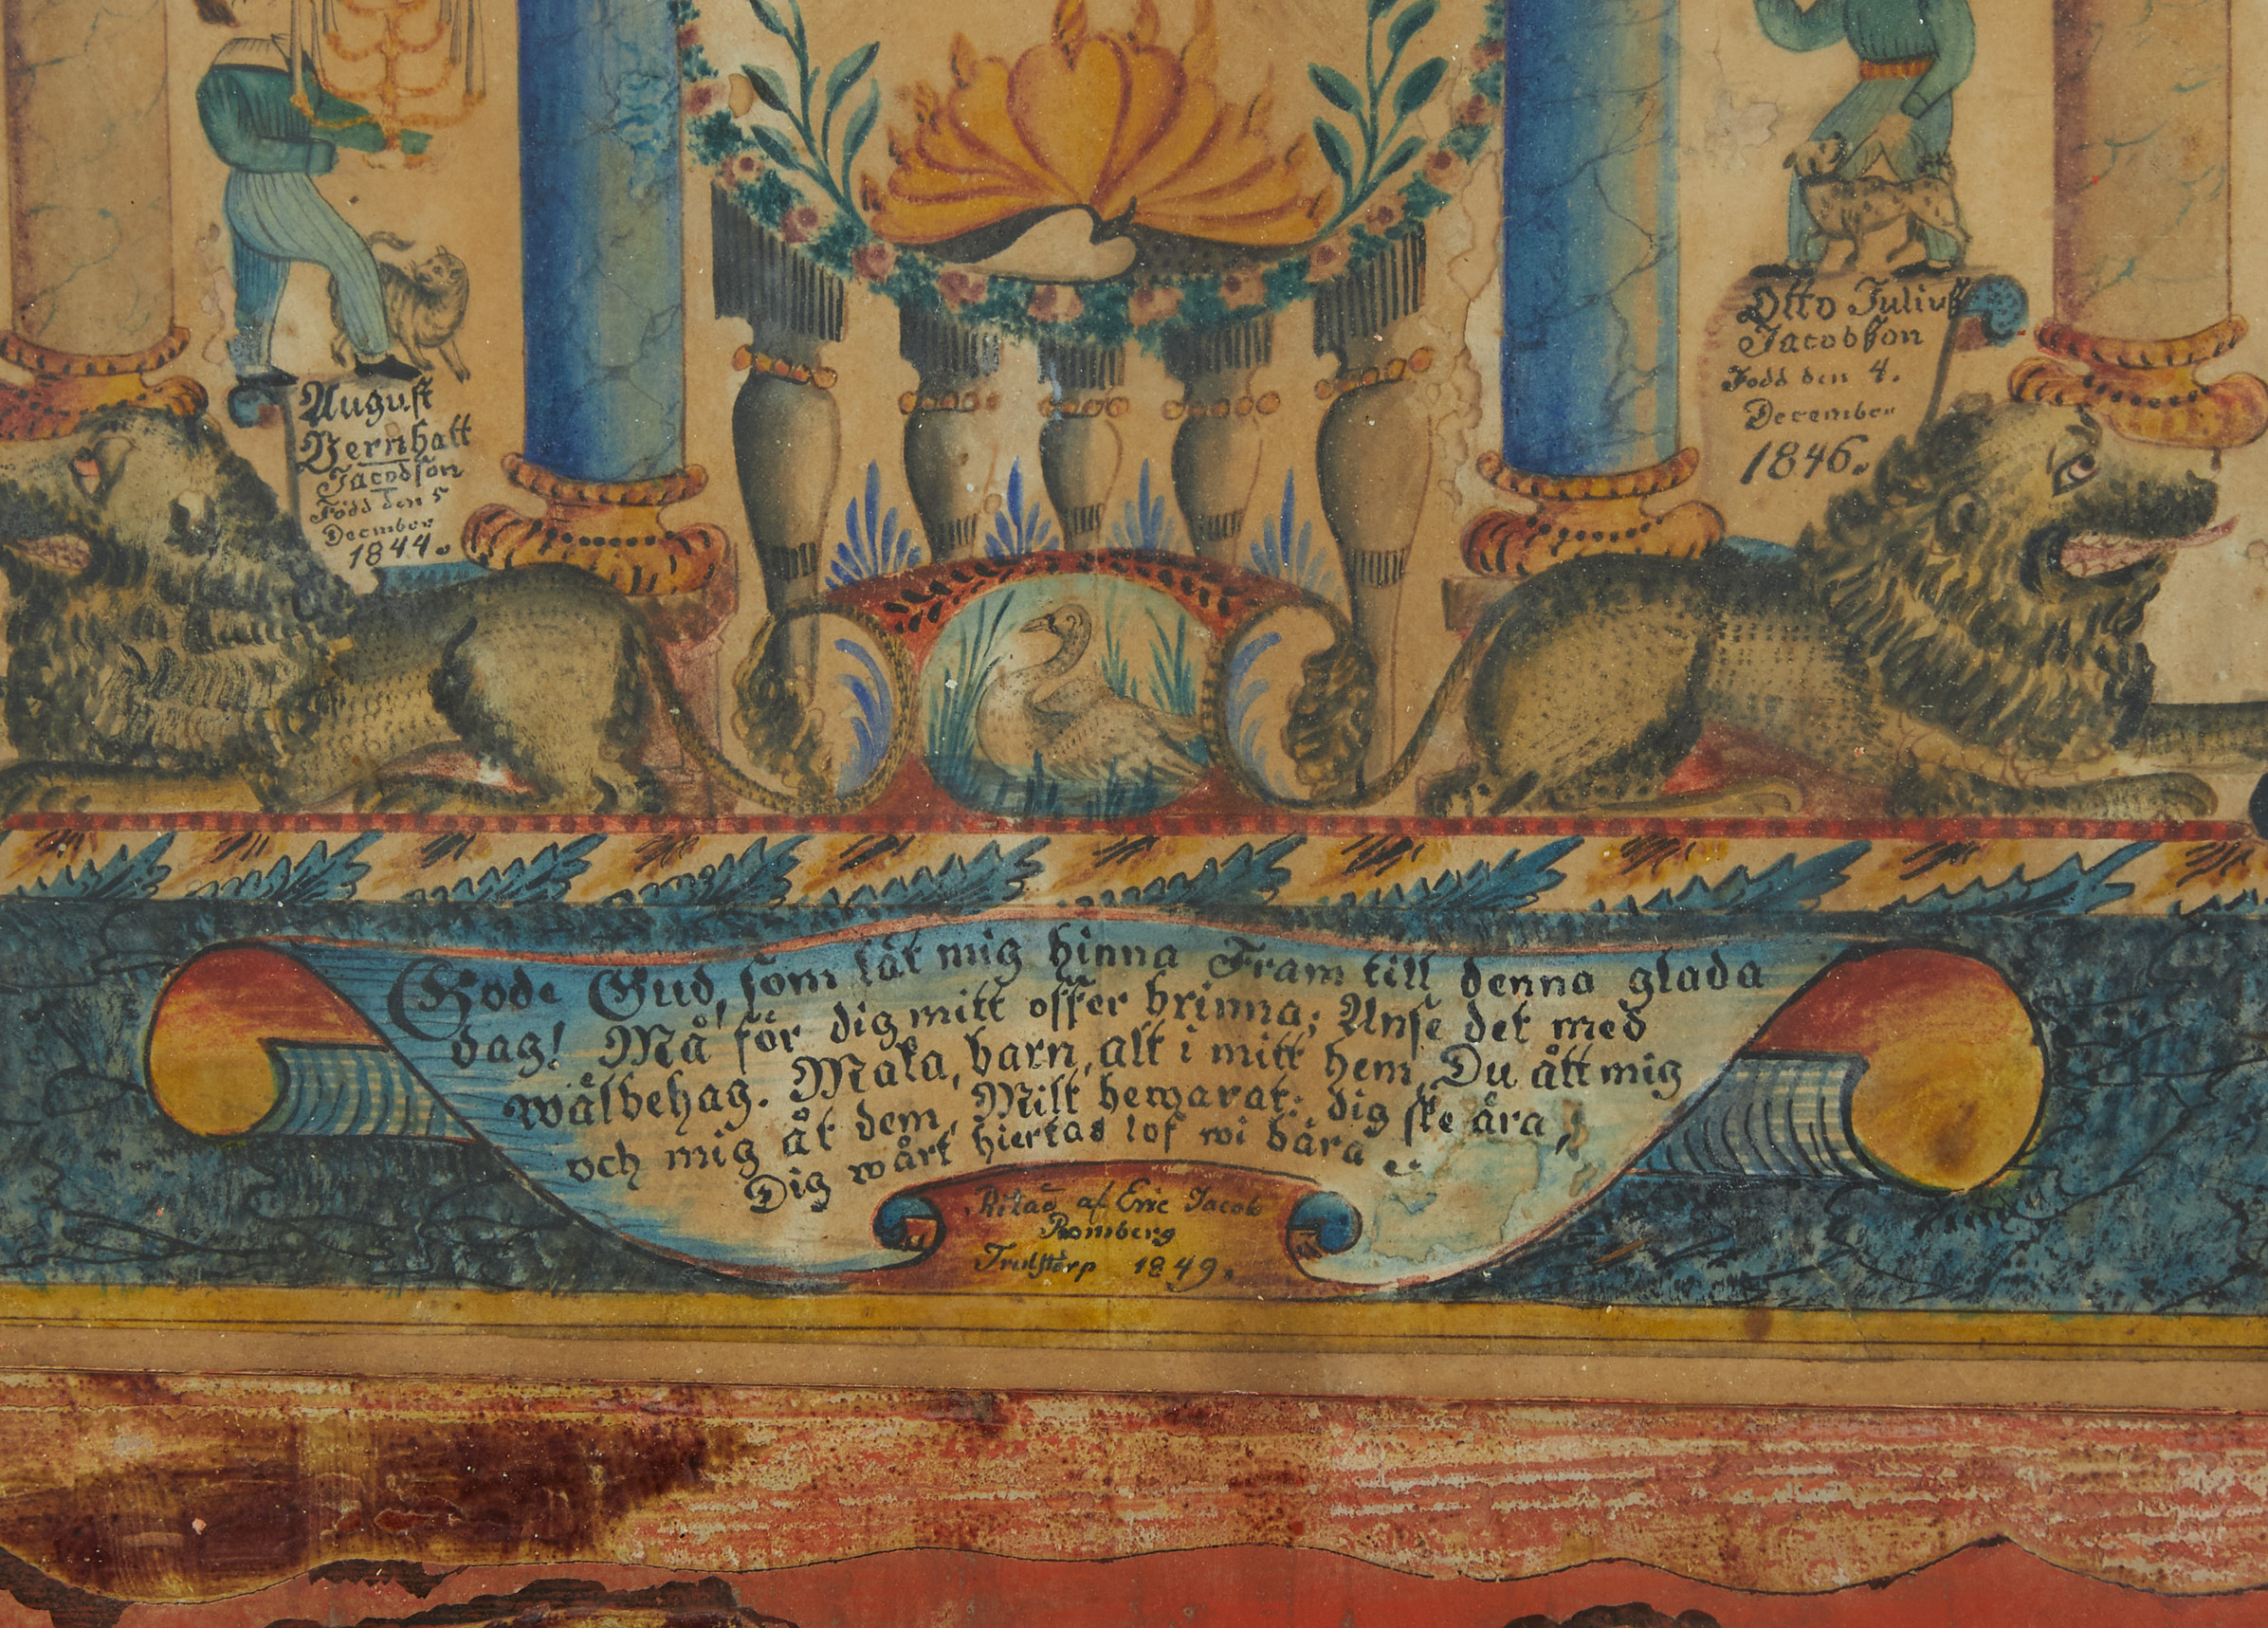 August
Bernhatt
Jacobson
Född den 5
December
1844.
Otto Julius
Jacobson
Född den 4.
December
1846.
Gode Gud, som lät mig hinna Fram till denna glada
dag! Må för dig mitt offer brinna; Anse det med
wälbehag. Maka, barn, alt i mitt hem, Du ått mig
och mig åt dem, Milt bewarat: dig ske ära,
Dig wårt hiertas lof wi bära.
Ritad af Eric Jacob
Romberg
Trulstorp 1849.